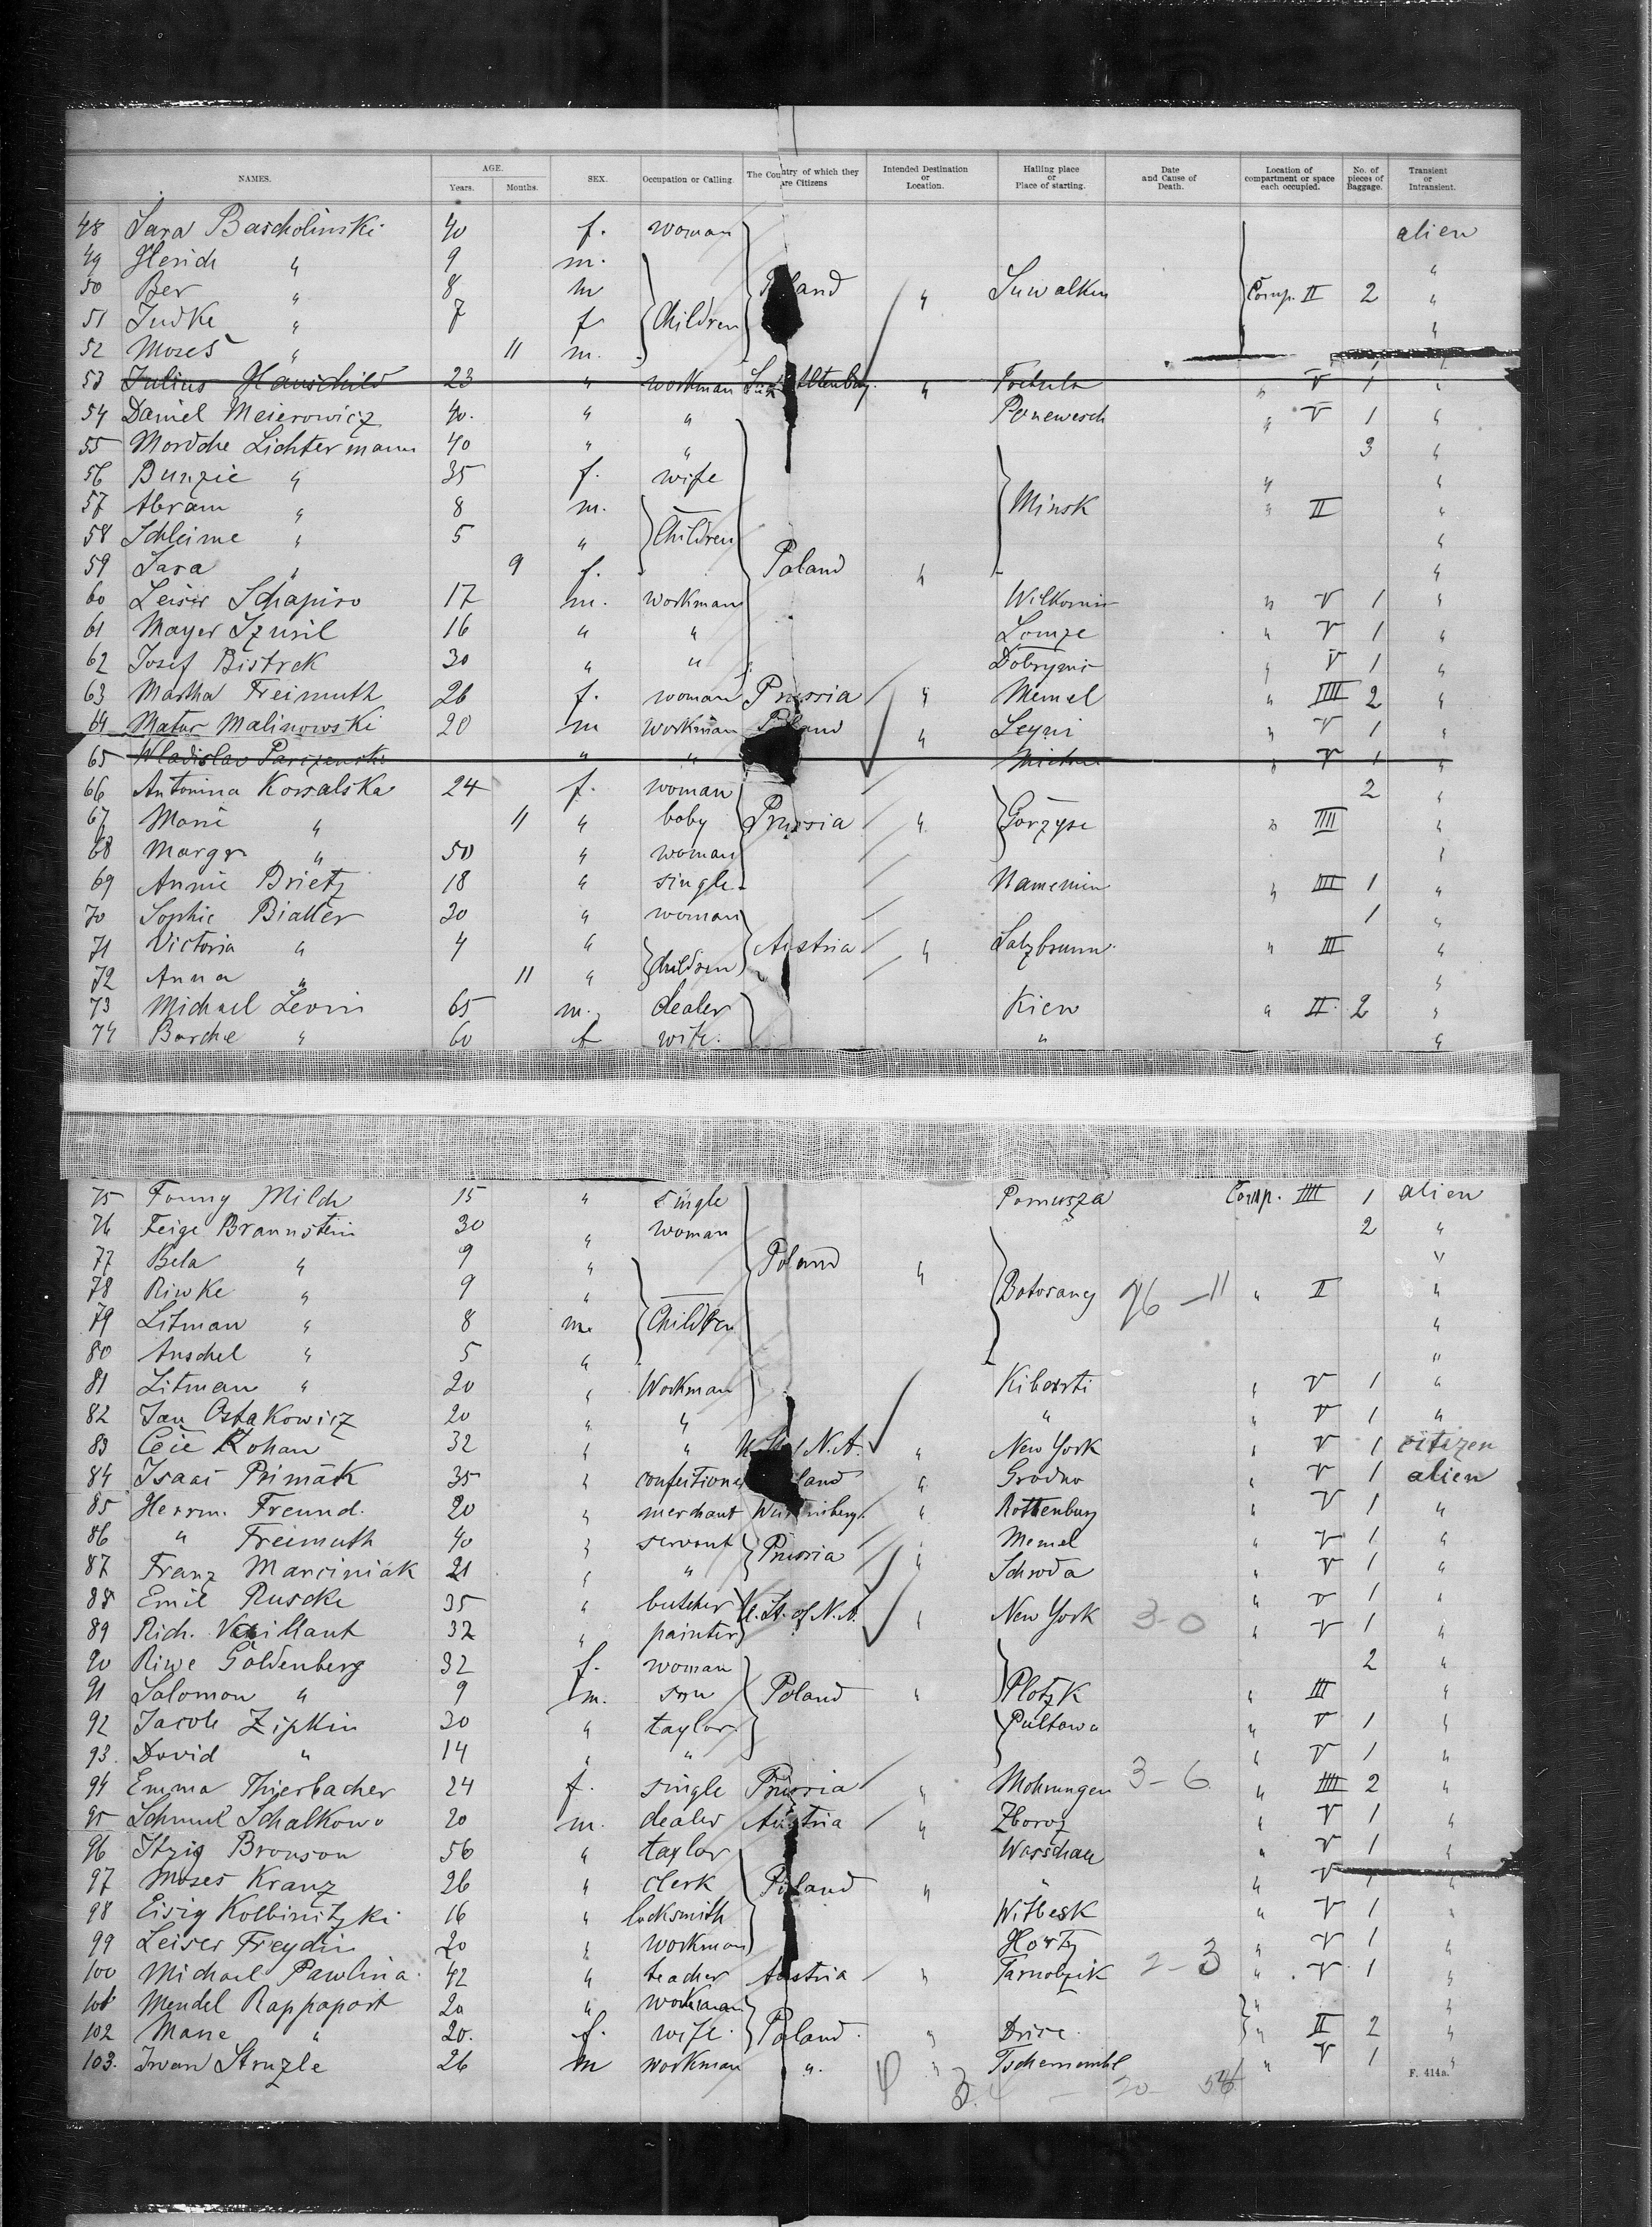 NAMES. AGE. Years. Months. SEX. Occupation or Calling. The Country of which they are Citizens Intended Destination or Location. Hailing place or Place of starting. Date and Cause of Death. Location of compartment or space each occupied. No. of pieces of Baggage. Transient or Intransient.
48 Sara Bascholinski 40 f. woman alien
49 Hersch " 9 m. "
50 Ber " 8 m Poland " Suwalken Comp. II 2 "
51 Judke " 7 f Children "
52 Moses " 11 m.
53 Julius Hauschild 23 " workman " " V 1 "
54 Daniel Meierowicz 40. " " Ponewesch " V 1 "
55 Mordche Lichtermann 40 " " 3 "
56 Bunzie " 35 f. wife " "
57 Abram " 8 m. Minsk " II "
58 Schleime " 5 " Children "
59 Sara " 9 f. Poland " "
60 Leiser Schapiro 17 m. workman Wilkomir " V 1 "
61 Mayer 16 " " Lomze " V 1 "
62 Josef Bistrek 30 " " " V 1 "
63 Martha Freimuth 26 f. woman Prussia " Memel " IIII 2 "
64 Malinowski 20 m workman Poland " " V 1 "
65 Wladislav " " " V 1 "
66 Antonina Kowalska 24 f. woman 2 "
67 Marie " 11 " baby Prussia " " IIII "
68 " 50 " woman "
69 Annie Brietz 18 " single " IIII 1 "
70 Sophie Bialler 30 " woman 1 "
71 Victoria " 4 " Austria " Salzbrunn " III "
72 Anna " 11 " children "
73 Michael Levin 65 m. dealer Kiew " II 2 "
74 Basche " 60 f wife. " "
75 Fanny Milch 15 " single Comp. IIII 1 alien
76 Feige Braunstein 30 " woman 2 "
77 Bela " 9 " Poland " "
78 Riwke " 9 " Botosany 76 – 11 " II "
79 Litman " 8 m. Children "
80 Anschel " 5 " "
81 Litman " 20 " Workman " V 1 "
82 Jan Ostakowicz 20 " " " " V 1 "
83 32 " " N.A. " New York " V 1 citizen
84 Isaac Primak 35 " confectioner Poland " Grodno " V 1 alien
85 Herrm. Freund. 20 " merchant " Rottenburg " V 1 "
86 " Freimuth 40 " servant Memel " V 1 "
87 Franz Marciniak 21 " " Prussia " Schroda " V 1 "
88 Emil Ruscke 35 " butcher U. St. of N. A. " V 1 "
89 Rich. Vaillant 32 " painter " New York 3-0 " V 1 "
90 Riwe Goldenberg 32 f. woman 2 "
91 Salomon " 9 m. son Poland " Plotzk " III "
92 Jacob Zipkin 30 " taylor Pultawa " V 1 "
93. David " 14 " " " V 1 "
94 Emma Thierbacher 24 f. single Prussia " Mohrungen 3-6 " IIII 2 "
95 Schmul Schalkowo 20 m. dealer Austria " " V 1 "
96 Itzig Bronson 56 " taylor Warschau " V 1 "
97 Moses Kranz 26 " clerk Poland " " " V "
98 Eisig Kolbinitzki 16 " locksmith Witbesk " V 1 "
99 Leiser Freydin 20 " workman " V 1 "
100 Michael Pawlina 42 " teacher Austria " 2-3 " V 1 "
101 Mendel Rappaport 20 " workman " "
102 Marie " 20. f. wife. Poland. " " II 2 "
103. Iwan Struzle 26 m workman " " " V 1 "
F. 414a.